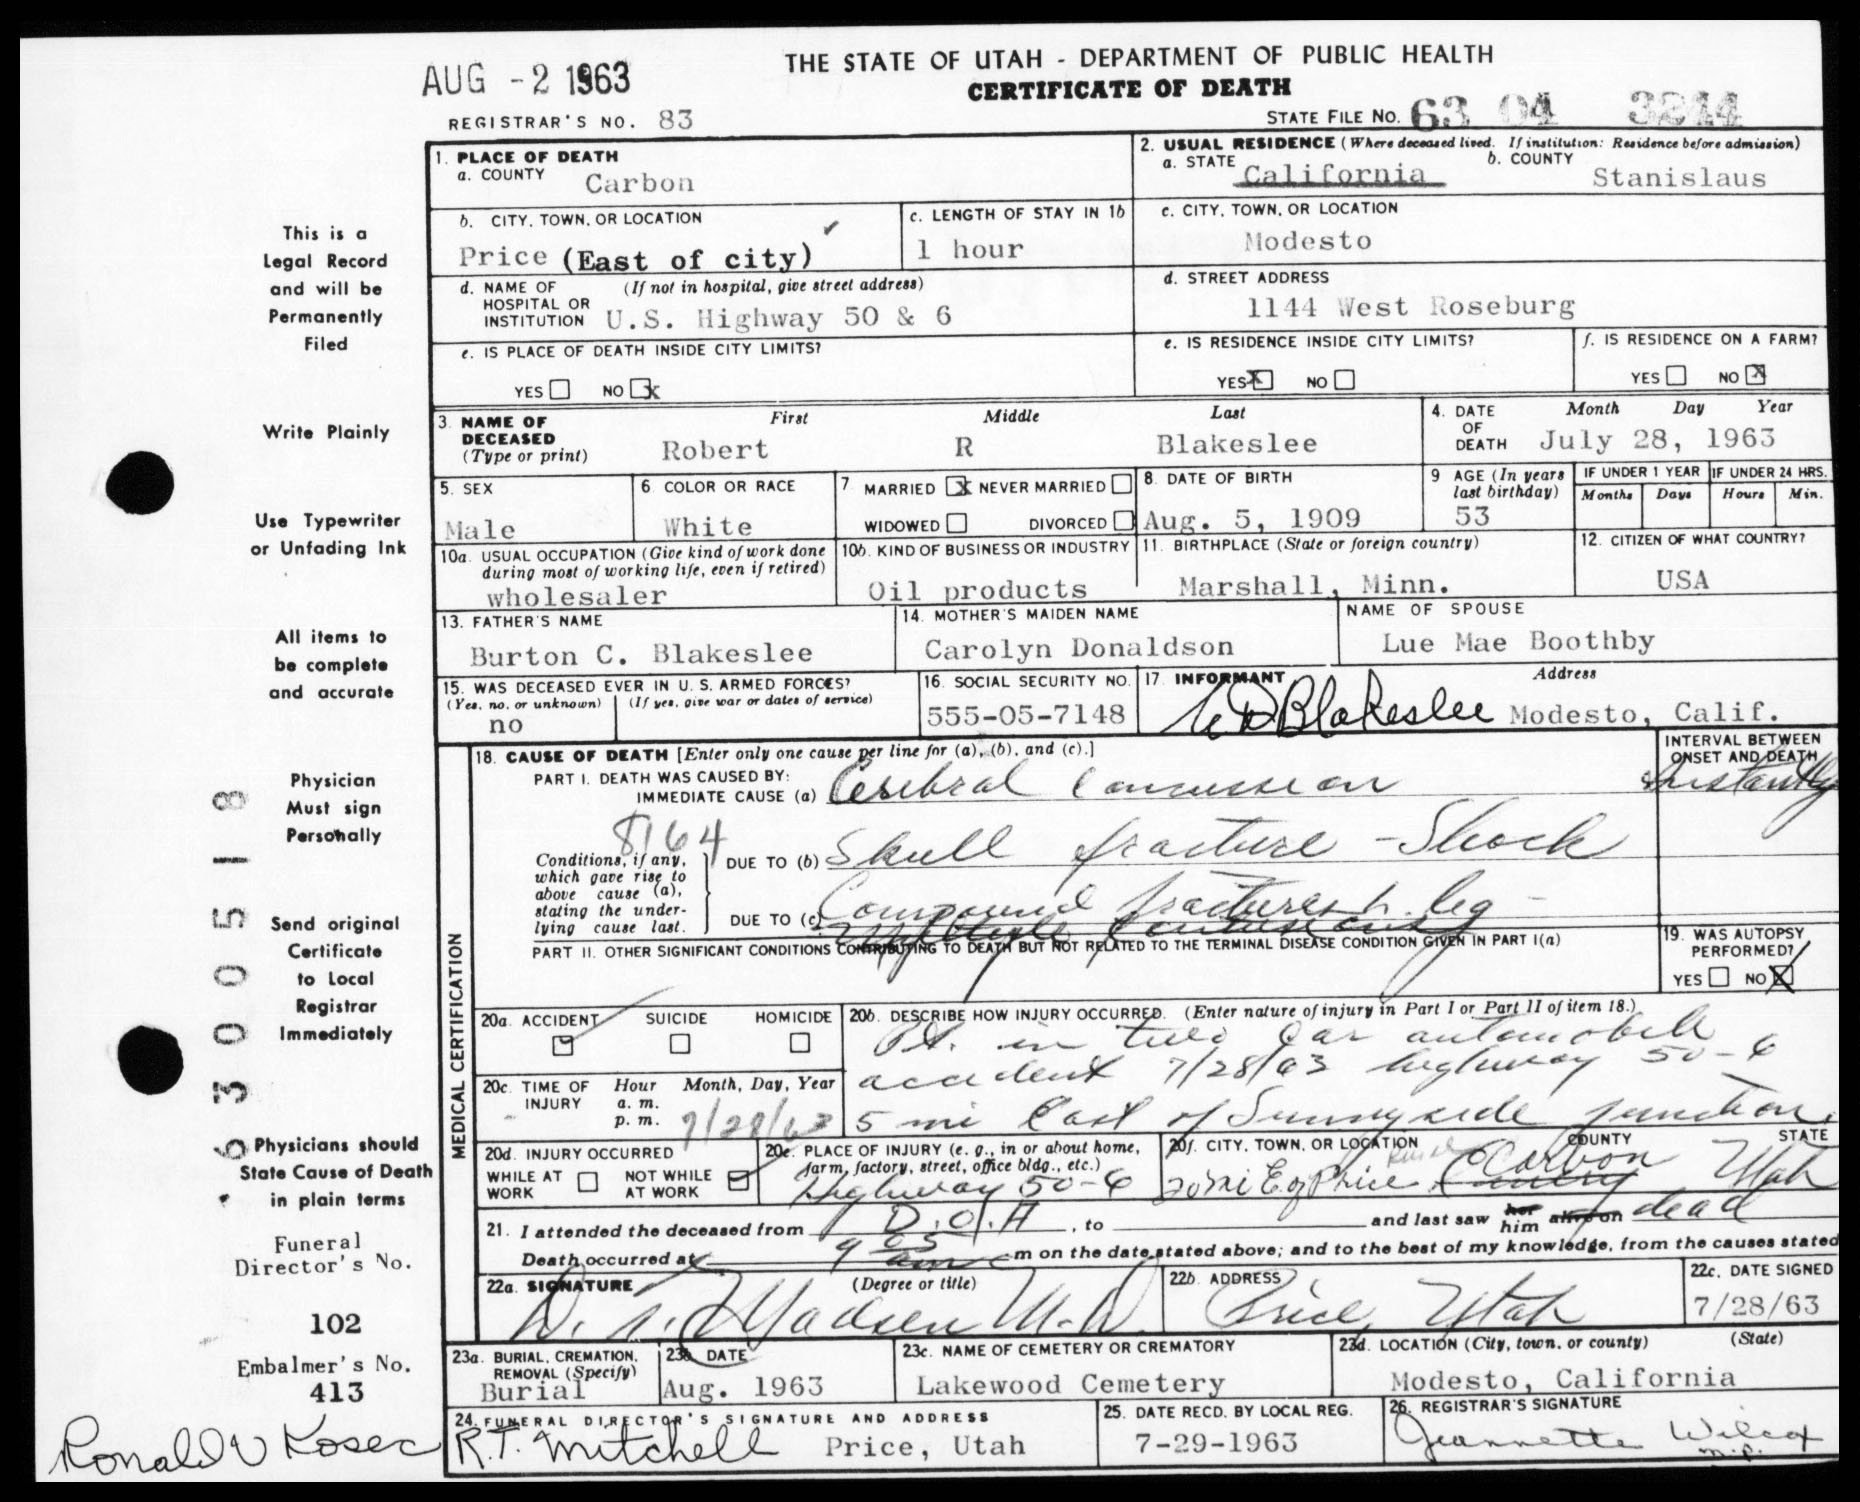 AUG -2 1963
THE STATE OF UTAH - DEPARTMENT OF PUBLIC HEALTH
CERTIFICATE OF DEATH
REGISTRAR'S NO. 83
STATE FILE NO. 63 04 3244
1. PLACE OF DEATH
a. COUNTY Carbon
2. USUAL RESIDENCE (Where deceased lived. If institution: Residence before admission)
a. STATE California b. COUNTY Stanislaus
b. CITY, TOWN, OR LOCATION
Price (East of city)
c. LENGTH OF STAY IN 1b
1 hour
c. CITY, TOWN, OR LOCATION
Modesto
d. NAME OF HOSPITAL OR INSTITUTION (If not in hospital, give street address)
U.S. Highway 50 & 6
d. STREET ADDRESS
1144 West Roseburg
e. IS PLACE OF DEATH INSIDE CITY LIMITS?
YES NO x
e. IS RESIDENCE INSIDE CITY LIMITS?
YES x NO
f. IS RESIDENCE ON A FARM?
YES NO x
3. NAME OF DECEASED (Type or print)
First Middle Last
Robert R Blakeslee
4. DATE OF DEATH Month Day Year
July 28, 1963
5. SEX
Male
6. COLOR OR RACE
White
7. MARRIED x NEVER MARRIED
WIDOWED DIVORCED
8. DATE OF BIRTH
Aug. 5, 1909
9 AGE (In years last birthday)
53
IF UNDER 1 YEAR
Months Days
IF UNDER 24 HRS.
Hours Min.
10a. USUAL OCCUPATION (Give kind of work done during most of working life, even if retired)
wholesaler
10b. KIND OF BUSINESS OR INDUSTRY
Oil products
11. BIRTHPLACE (State or foreign country)
Marshall, Minn.
12. CITIZEN OF WHAT COUNTRY?
USA
13. FATHER'S NAME
Burton C. Blakeslee
14. MOTHER'S MAIDEN NAME
Carolyn Donaldson
NAME OF SPOUSE
Lue Mae Boothby
15. WAS DECEASED EVER IN U.S. ARMED FORCES?
(Yes, no, or unknown) (If yes, give war or dates of service)
no
16. SOCIAL SECURITY NO.
555-05-7148
17. INFORMANT Address
Blakeslee Modesto, Calif.
MEDICAL CERTIFICATION
18. CAUSE OF DEATH [Enter only one cause per line for (a), (b), and (c).]
INTERVAL BETWEEN ONSET AND DEATH
PART I. DEATH WAS CAUSED BY:
IMMEDIATE CAUSE (a) Cerebral Concussion Instantly
8164
Conditions, if any, which gave rise to above cause (a), stating the underlying cause last.
DUE TO (b) Skull fracture - Shock
DUE TO (c) Compound fractures h. leg -
Multiple Contusions
PART II. OTHER SIGNIFICANT CONDITIONS CONTRIBUTING TO DEATH BUT NOT RELATED TO THE TERMINAL DISEASE CONDITION GIVEN IN PART I(a)
19. WAS AUTOPSY PERFORMED?
YES NO X
20a. ACCIDENT SUICIDE HOMICIDE
20b. DESCRIBE HOW INJURY OCCURRED. (Enter nature of injury in Part I or Part II of item 18.)
Pt. in two car automobile
accident 7/28/63 highway 50-6
5 mi East of Sunnyside junction.
20c. TIME OF INJURY Hour a. m. p. m. Month, Day, Year
7/28/63
20d. INJURY OCCURRED
WHILE AT WORK NOT WHILE AT WORK
20e. PLACE OF INJURY (e. g., in or about home, farm, factory, street, office bldg., etc.)
Highway 50-6
20f. CITY, TOWN, OR LOCATION COUNTY STATE
20 mi E of Price Carbon Utah
21. I attended the deceased from D.O.A , to and last saw her him alive on dead
Death occurred at 9 05 am m on the date stated above; and to the best of my knowledge, from the causes stated
22a. SIGNATURE (Degree or title)
Madsen M.D.
22b. ADDRESS
Price, Utah
22c. DATE SIGNED
7/28/63
23a. BURIAL, CREMATION, REMOVAL (Specify)
Burial
23b. DATE
Aug. 1963
23c. NAME OF CEMETERY OR CREMATORY
Lakewood Cemetery
23d. LOCATION (City, town, or county) (State)
Modesto, California
24. FUNERAL DIRECTOR'S SIGNATURE AND ADDRESS
R.T. Mitchell Price, Utah
25. DATE RECD. BY LOCAL REG.
7-29-1963
26. REGISTRAR'S SIGNATURE
Jeannette Wilcox
This is a
Legal Record
and will be
Permanently
Filed
Write Plainly
Use Typewriter
or Unfading Ink
All items to
be complete
and accurate
Physician
Must sign
Personally
Send original
Certificate
to Local
Registrar
Immediately
Physicians should
State Cause of Death
in plain terms
6300518
Funeral
Director's No.
102
Embalmer's No.
413
Ronald V Kosec